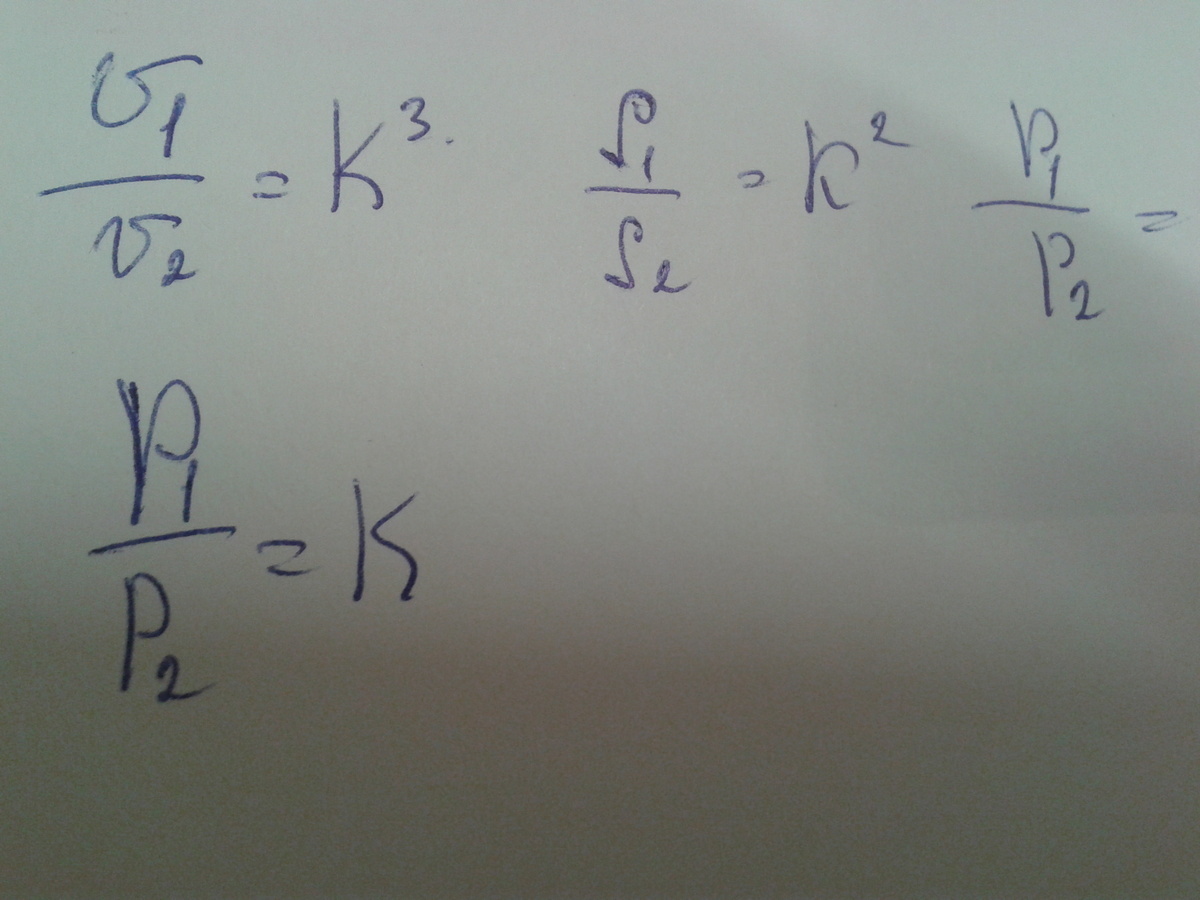 υ₁/υ₂ = K³. S₁/S₂ = K² P₁/P₂ =
P₁/P₂ = K